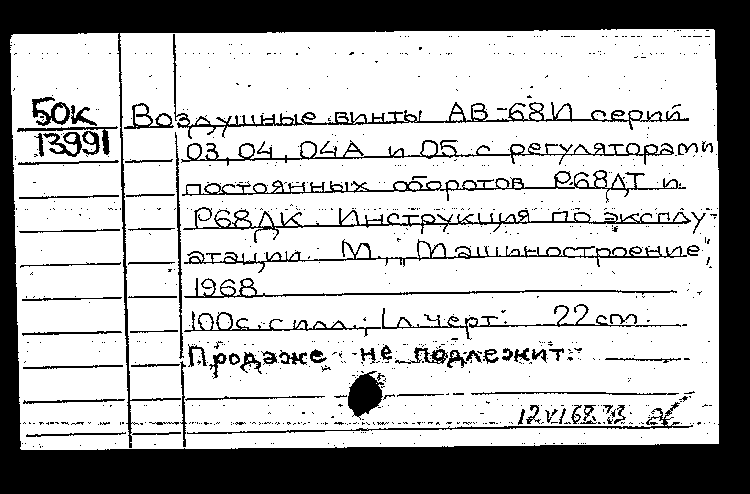 БОК
13991
Воздушные винты АВ-68И серий
03, 04, 04А и 05 с регуляторами
постоянных оборотов Р68ДТ и
Р68ДК. Инструкция по эксплу-
атации. М., "Машиностроение",
1968.
100с. с илл.; 1 л. черт. 22 cm.
Продаже не подлежит.
12 VI 68